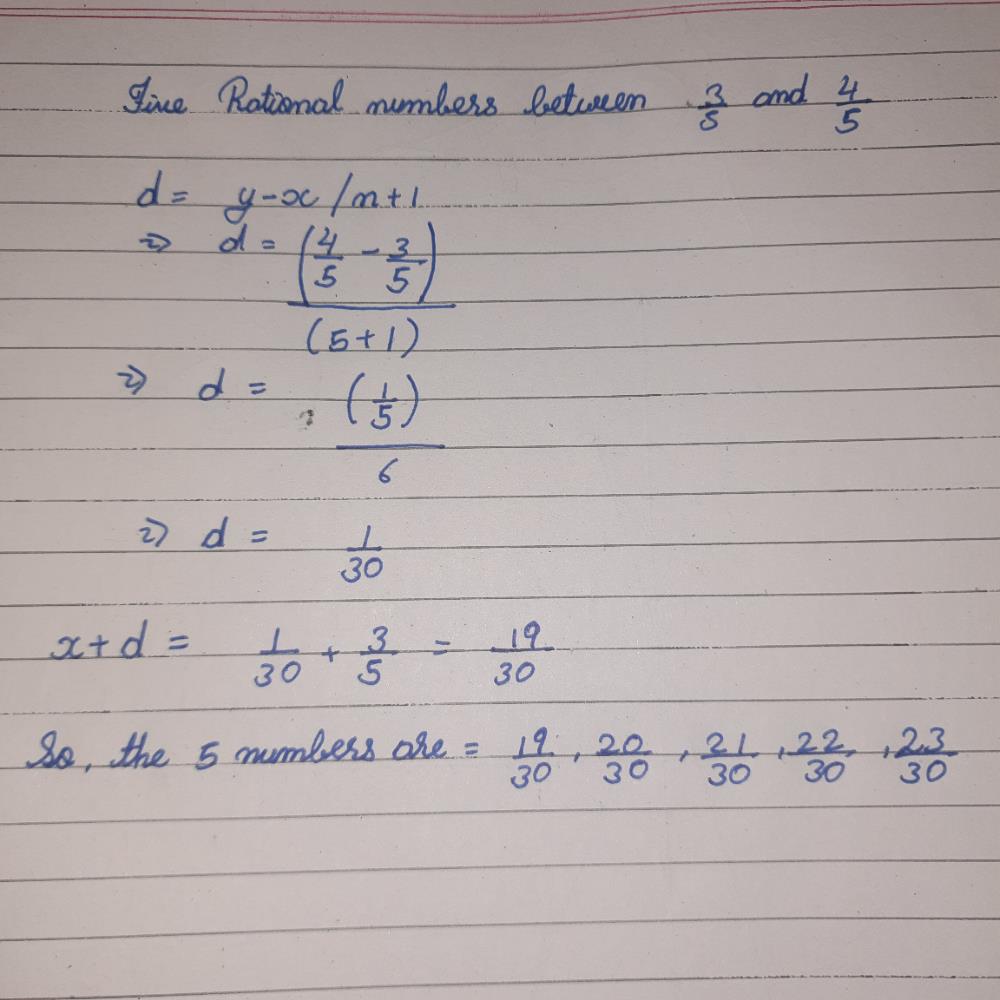 Five Rational numbers between 3/5 and 4/5
d = y-x/n+1
⇒ d = (4/5 - 3/5)/(5+1)
⇒ d = (1/5)/6
⇒ d = 1/30
x+d = 1/30 + 3/5 = 19/30
So, the 5 numbers are = 19/30, 20/30, 21/30, 22/30, 23/30